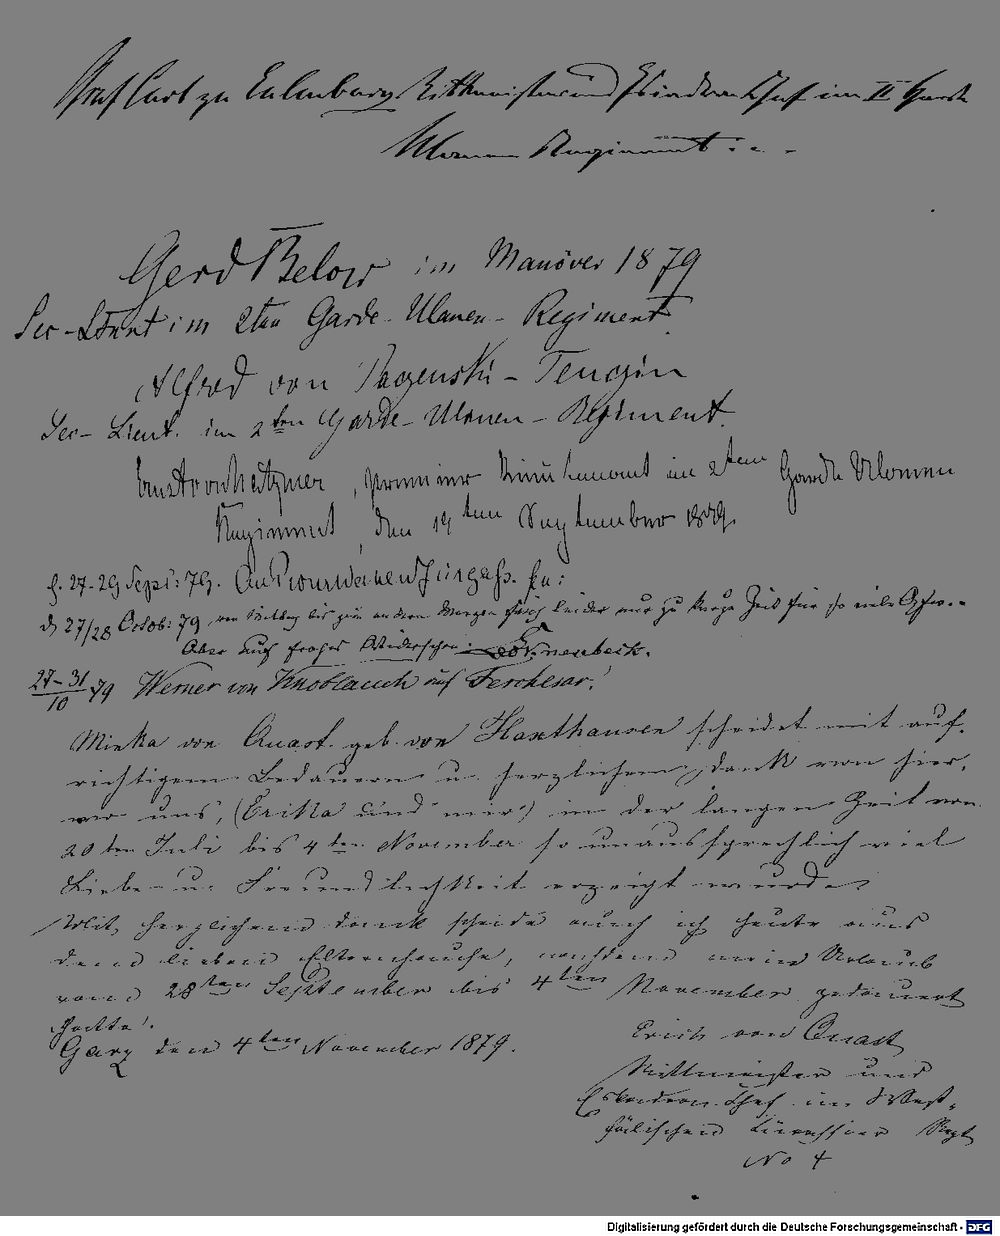 Graf Carl zu Eulenburg Rittmeister und Eskadron Chef im II Garde
Ulanen Regiment
Gerd Below im Manöver 1879
Sec-Lieut im 2ten Garde-Ulanen-Regiment
Alfred von Pagenski-Tengin
Sec-Lieut. im 2ten Garde-Ulanen-Regiment.
Ernst von, Premier Lieutenant im 2tem Garde Ulanen
Regiment, den 14ten September 1879.
27-29 Sept: 79.
27/28 Octob: 79 von Mittag bis zum andern Morgen leider nur zu kurze Zeit für so viele
Aber auf frohes Wiedersehen
27-31/10 79 Werner von Knoblauch auf Ferchesar.
Minka von Quast geb. von Haxthausen scheidet mit auf-
richtigem Bedauern u. herzlichem Dank von hier,
wo uns, (Erika und mir) in der langen Zeit vom
20ten Juli bis 4ten November so unaussprechlich viel
Liebe u. Freundlichkeit erzeigt wurde.
Mit herzlichem Dank scheide auch ich heute aus
dem lieben Elternhause, nachdem mein Urlaub
vom 28ten September bis 4ten November gedauert
hatte.
Garz den 4ten November 1879.
Erich von Quast
Rittmeister und
Eskadron Chef im West-
fälischen Kürassier Regt
No 4
Digitalisierung gefördert durch die Deutsche Forschungsgemeinschaft - DFG